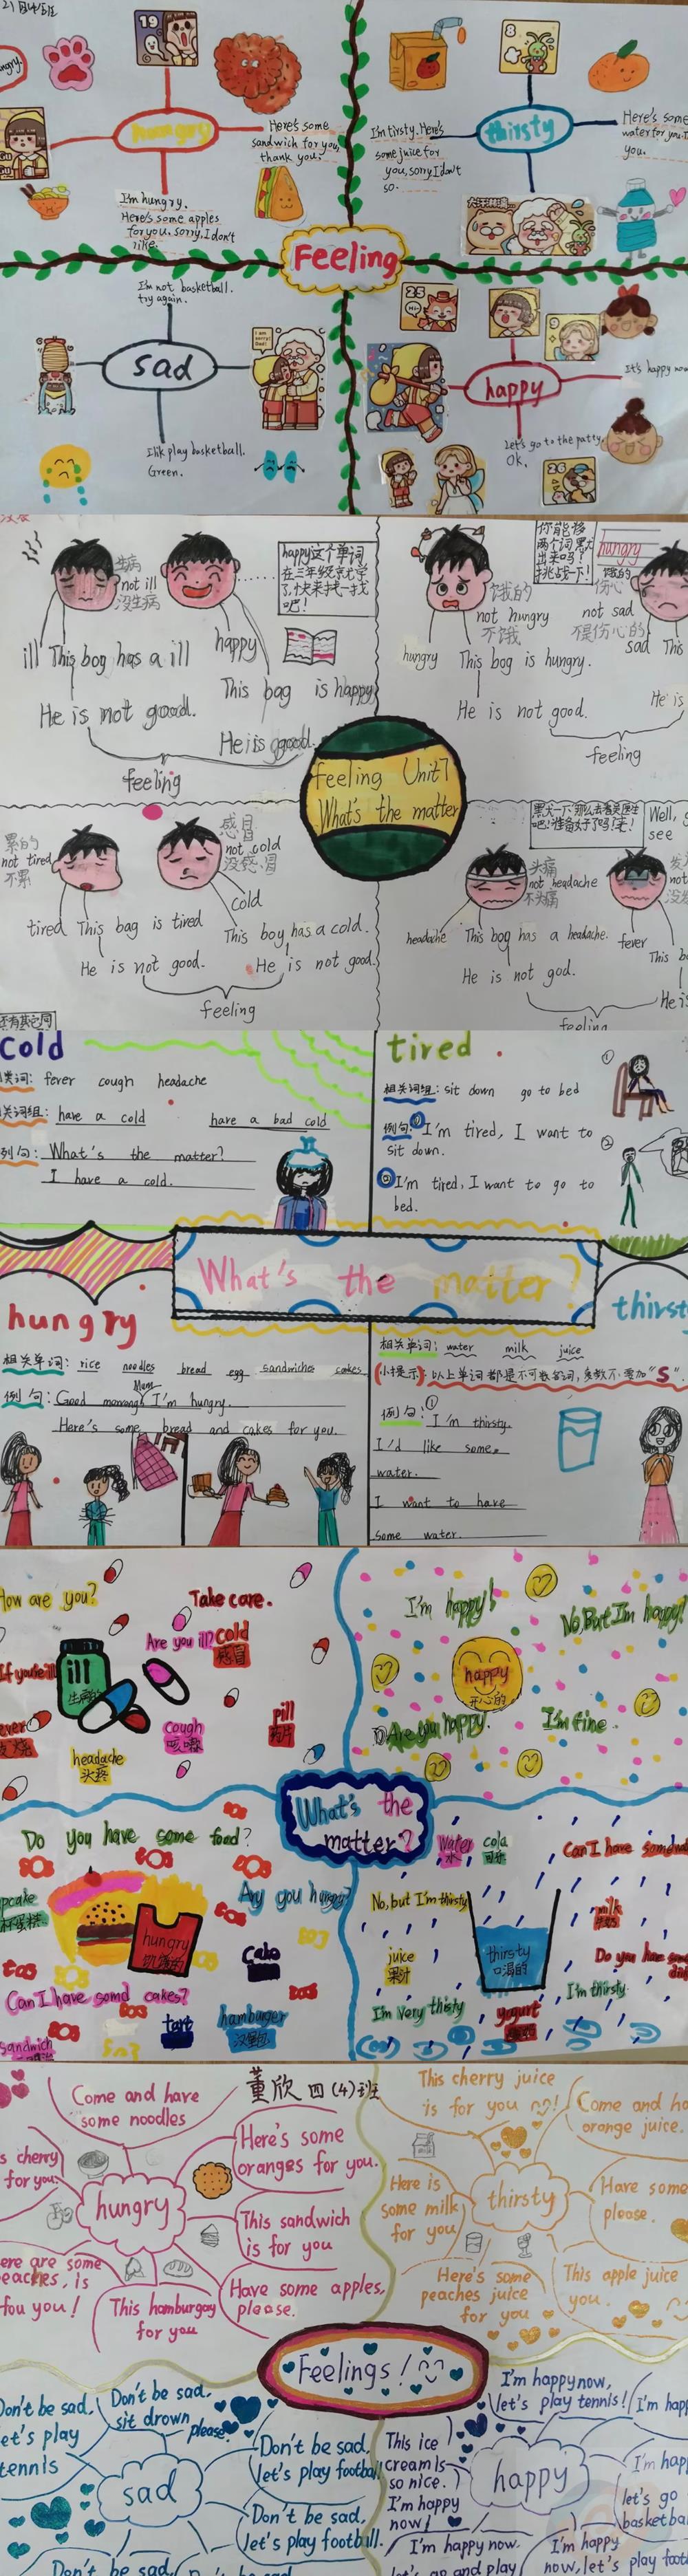 19
hungry
Here's some
sandwich for you,
thank you.
I'm hungry.
Here's some apples
for you. sorry, I don't
like.
8
thirsty
I'm tirsty. Here's
some juice for
you, sorry I don't
so.
Here's some
water for you.
you.
Feeling
I'm not basketball.
try again.
sad
I lik play basketball.
Green.
25
9
26
happy
It's happy now
Let's go to the patty.
OK.
生病
not ill
没生病
ill
This bog has a ill
He is not goood.
happy
This bag is happy
He is ggood.
feeling
饿的
not hungry
不饿
hungry
This bog is hungry.
He is not good.
hungry
饿的
伤心
not sad
不是伤心的
sad
This
He is
feeling
feeling Unit7
What's the matter
累的
not tired
不累
tired
This bag is tired
He is not good.
感冒
not cold
没感冒
cold
This boy has a cold.
He is not good.
feeling
头痛
not headache
不头痛
headache
This bog has a headache.
He is not god.
Well,
see
not
fever
This b
He is
feeling
cold
fever cough headache
have a cold have a bad cold
例句: What's the matter?
I have a cold.
tired
相关词组: sit down go to bed
例句: ①I'm tired, I want to
sit down.
②I'm tired, I want to go to
bed.
①
②
What's the matter?
hungry
相关单词: rice noodles bread egg sandwiches cakes
例句: Good morning Mum I'm hungry.
Here's some bread and cakes for you.
thirst
相关单词: water milk juice
(小提示): 以上单词都是不可数名词, 多数不要加"S".
例句: ①
I'm thirsty.
I'd like some
water.
I want to have
some water.
How are you?
Take care.
Are you ill?
cold
感冒
If you're ill
ill
生病的
pill
药片
cough
咳嗽
headache
头疼
I'm happy!
No, But I'm happy!
happy
开心的
Are you happy.
I'm fine.
What's the
matter?
Do you have some food?
Any you hungry?
hungry
饥饿的
Cake
Can I have somd cakes?
tart
hamburger
汉堡包
sandwich
Water
水
cola
可乐
No, but I'm thirsty
juice
果汁
thirsty
口渴的
milk
牛奶
I'm thirsty.
I'm very thisty
yogurt
董欣 四(4)班
Come and have
some noodles
s cherry
for you.
hungry
Here's some
oranges for you.
This sandwich
is for you
Have some apples,
please.
This hamburgay
for you
ere are some
eaches, is
fou you!
This cherry juice
is for you
Come and ha
orange juice.
thirsty
Here is
some milk
for you
Have some
please.
Here's some
peaches juice
for you
This apple juice
you.
Feelings!
Don't be sad,
let's play
tennis
Don't be sad,
sit drown please.
sad
Don't be sad,
let's play football
Don't be sad,
let's play football.
Don't be sad,
I'm happy now,
let's play tennis!
I'm hap
This ice
cream is
so nice.
I'm happy
now!
happy
I'm hap
let's go
basketba
I'm happy now.
let's go and play
I'm happy
now, let's play foot